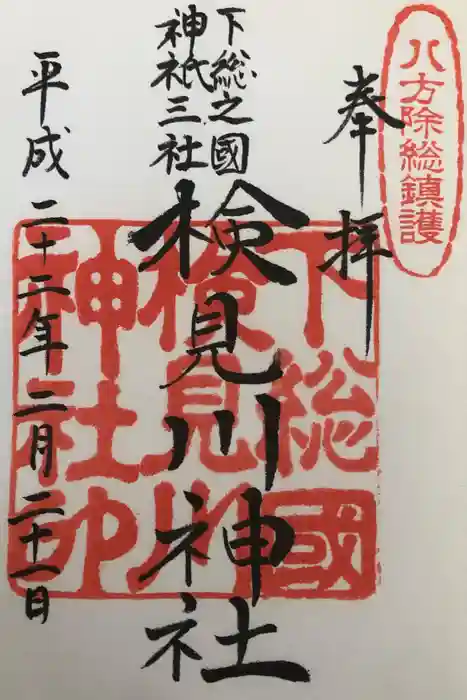 八方除総鎮護
奉拝
下総之國
神祇三社
検見川神社
平成二十二年二月二十一日
下総國
検見川
神社印